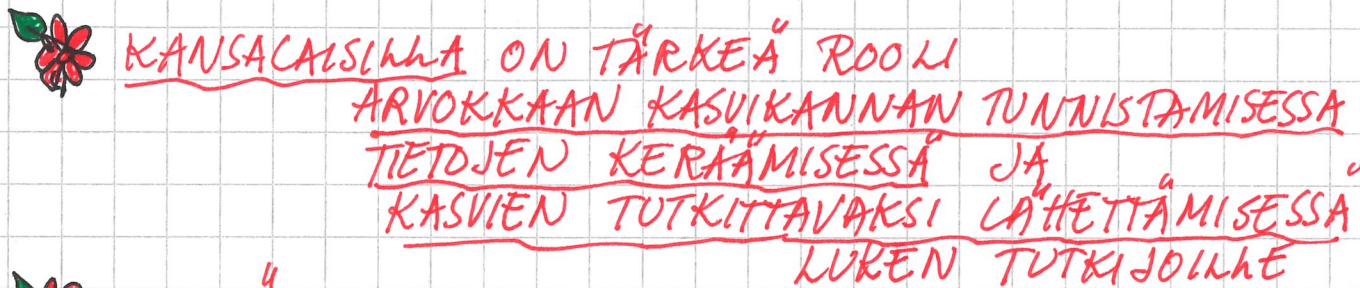 KANSALAISILLA ON TÄRKEÄ ROOLI
ARVOKKAAN KASVIKANNAN TUNNISTAMISESSA
TIETOJEN KERÄÄMISESSÄ JA
KASVIEN TUTKITTAVAKSI LÄHETTÄMISESSÄ
LUKEN TUTKIJOILLE